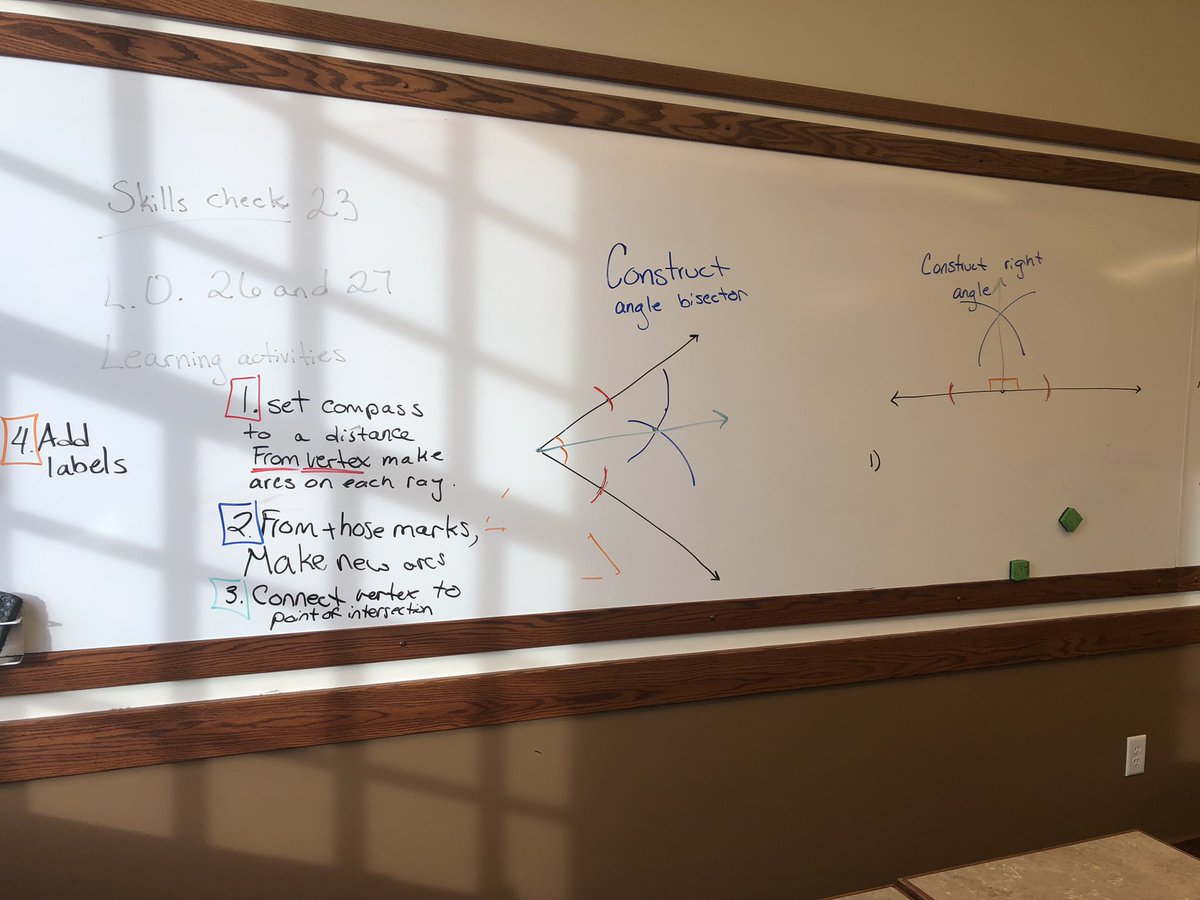 Skills check 23
L.O. 26 and 27
Learning activities
1. set compass
to a distance
From vertex make
arcs on each ray.
2. From those marks,
Make new arcs
3. Connect vertex to
point of intersection
4. Add
labels
Construct
angle bisector
Construct right
angle
1)